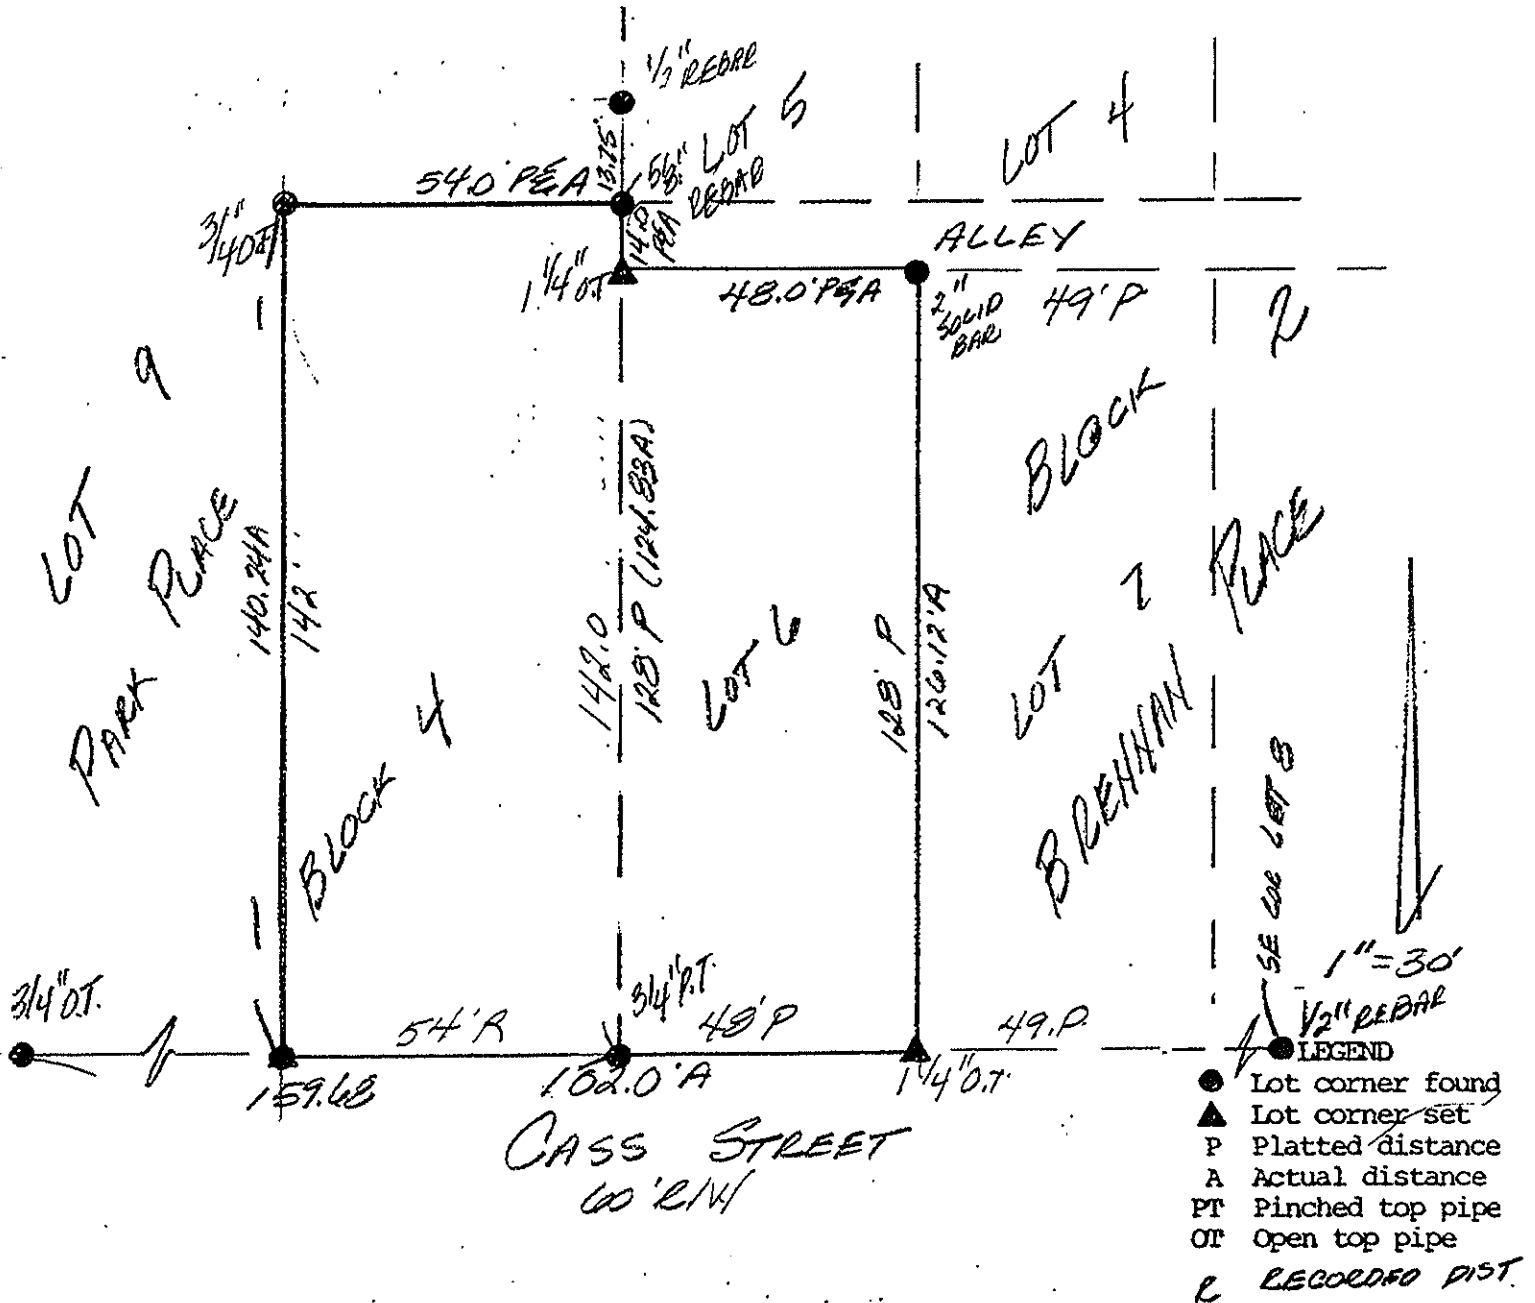 1/2" REBAR
LOT 5
LOT 4
13.75'
54.0' P&A
5/8" REBAR
3/4 O.T.
14.0 P&A
ALLEY
1 1/4" O.T.
48.0' P&A
2" SOLID BAR
49' P
LOT 9
PARK PLACE
BLOCK 2
140.24A
142'
142.0
128' P (124.83A)
LOT 6
128' P
126.12'A
LOT 7
BRENNAN PLACE
BLOCK 4
SE COR LOT 8
1"=30'
3/4" O.T.
3/4" P.T.
1/2" REBAR
54' R
48' P
49. P.
159.68
102.0' A
1 1/4" O.T.
CASS STREET
60' R/W
LEGEND
Lot corner found
Lot corner set
P Platted distance
A Actual distance
PT Pinched top pipe
OT Open top pipe
R RECORDED DIST.